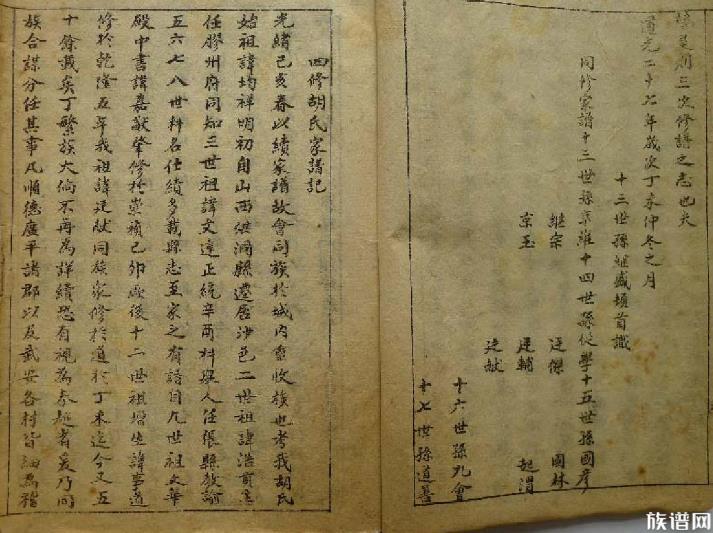 是則三次修譜之志也夫
道光二十七年歲次丁未仲冬之月
十三世孫繼盛頓首識
同修家譜十三世孫京維十四世孫從學十五世孫國彥
繼宗 廷傑 國林
京玉 廷輔 起渭
廷獻
十六世孫孔會
十七世孫道善
四修胡氏家譜記
光緒己亥春以續家譜故會同族於城內重收族也考我胡氏
始祖諱均祥明初自山西洪洞縣遷居沙邑二世祖諱浩貢生
任膠州府同知三世祖諱文達正統辛酉科舉人任張縣教諭
五六七八世科名仕績多載縣志至家之有譜自九世祖文華
殿中書諱嘉猷肇修於崇禎己卯厥後十二世祖增生諱事道
修於乾隆五年我祖諱廷獻同族家修於道光丁未迄今又五
十餘載矣丁繁族大倘不再為詳續恐有視為秦越者爰乃同
族合謀分任其事凡順德廣平諸郡以及武安各村皆細為稽
族谱网